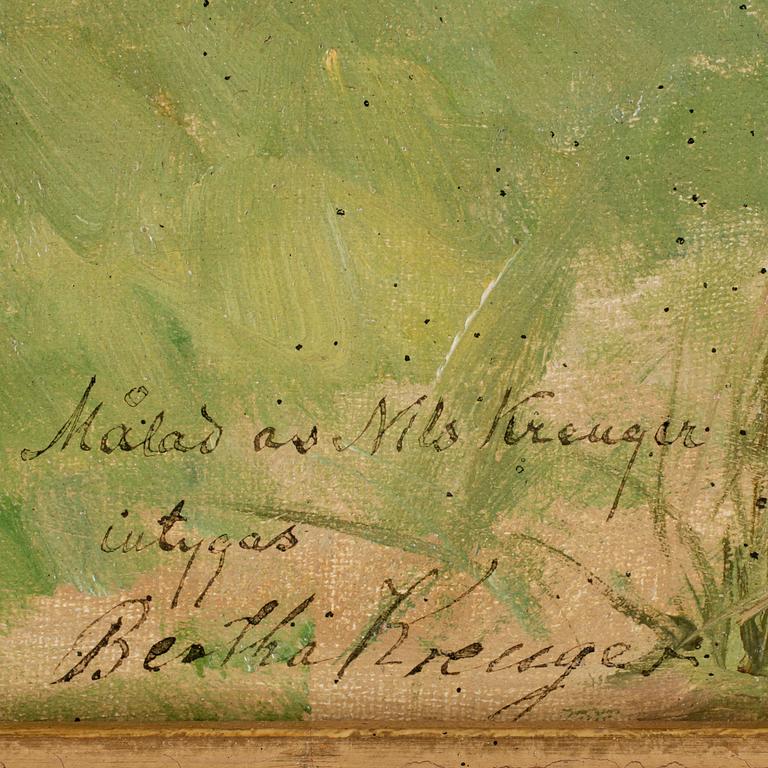 Målad av Nils Kreuger
intygas
Bertha Kreuger